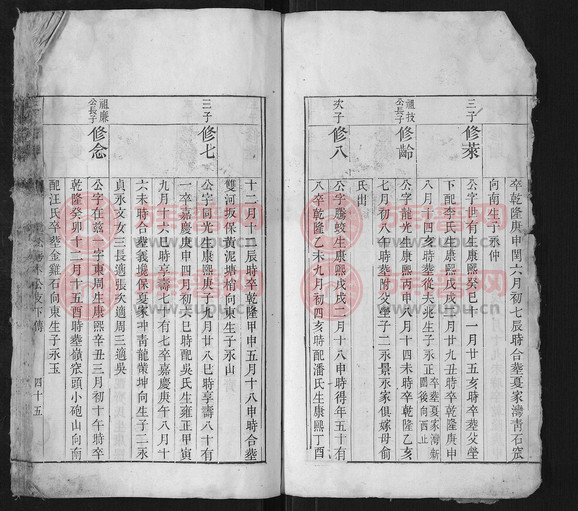 卒乾隆庚申閏六月初七辰時合葬夏家灣靑石窊
向南生子永仲
三子 修萊
公字世有生康熙癸巳十一月廿五亥時卒葬父塋
下配李氏生康熙戊戌二月廿九丑時卒乾隆庚申
八月十四亥時葬後夫兆生子永正 卒葬夏家灣新圖後向酉止
祖技公長子 修齡
公字龍光生康熙丙申十月十四未時卒乾隆乙亥
七月初八午時葬附父塋子二永景永家俱嫁母俞
氏出
次子 修八
公字騰蛟生康熙戊戌二月十八申時得年五十有
八卒乾隆乙未九月初四亥時配潘氏生康熙丁酉
十二月十二辰時卒乾隆甲申五月十八申時合葬
雙河坂保黃泥塘棺向東生子永山
三子 修七
公字同光生康熙庚子九月廿八巳時享壽八十有
一卒嘉慶庚申四月初六巳時配吳氏生雍正甲寅
九月十六巳時享壽七十有七卒嘉慶庚午八月十
六未時合葬義境保夏家冲靑龍業坤向生子二永
貞永文女三長適張次適周三適吳
祖廉公長子 修念
公字在茲一字東周生康熙辛丑三月初十午時卒
乾隆癸卯十二月十五酉時葬嶺窊頭小砲山向南
配汪氏卒葬金雞石向東生子永玉
四十五